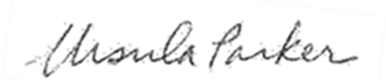 Ursula Parker